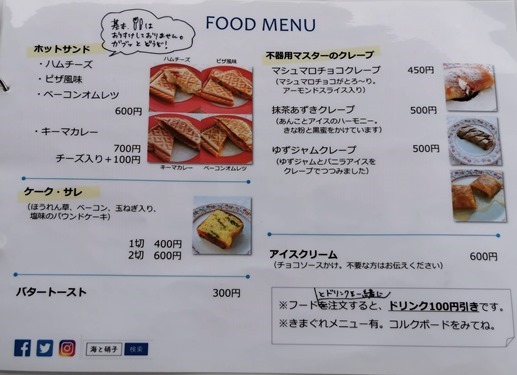 FOOD MENU
基本、
は
おつけしておりません。
ガブッとどうぞ!
ホットサンド
・ハムチーズ
・ピザ風味
・ベーコンオムレツ
600円
・キーマカレー
700円
チーズ入り+100円
ハムチーズ ピザ風味
キーマカレー ベーコンオムレツ
ケーク・サレ
(ほうれん草、ベーコン、玉ねぎ入り、
塩味のパウンドケーキ)
1切 400円
2切 600円
バタートースト 300円
海と硝子 検索
不器用マスターのクレープ
マシュマロチョコクレープ 450円
(マシュマロチョコがとろ~り。
アーモンドスライス入り)
抹茶あずきクレープ 500円
(あんことアイスのハーモニー。
きな粉と黒蜜をかけています)
ゆずジャムクレープ 500円
(ゆずジャムとバニラアイスを
クレープでつつみました)
アイスクリーム 600円
(チョコソースかけ。不要な方はお伝えください)
とドリンクを一緒に
※フードを注文すると、ドリンク100円引きです。
※きまぐれメニュー有。コルクボードをみてね。